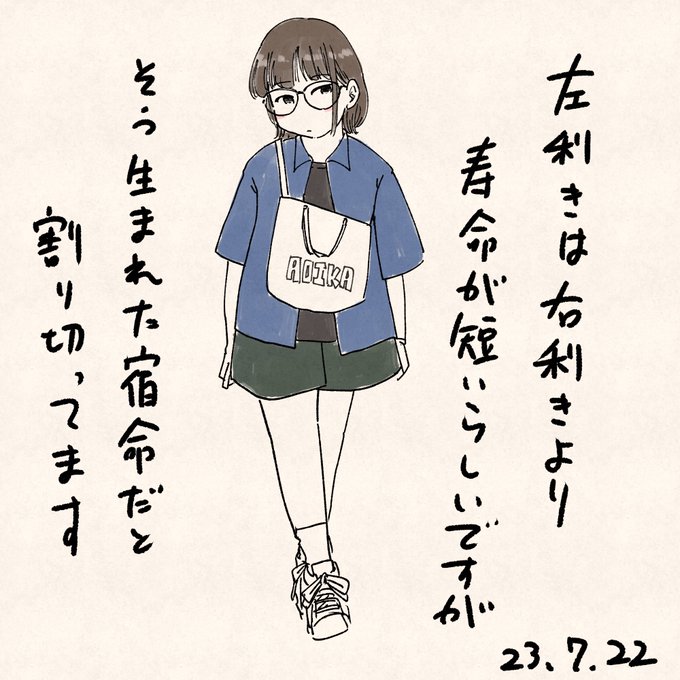 左利きは右利きより
寿命が短いらしいですが
そう生まれた宿命だと
割り切ってます
AOIKA
23.7.22